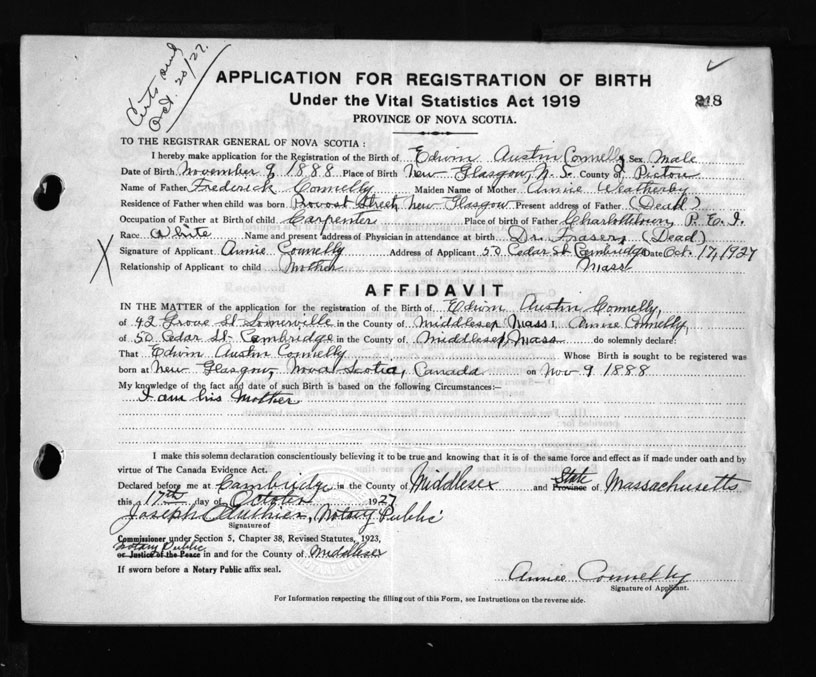 Certs sent
Oct. 20/27.
APPLICATION FOR REGISTRATION OF BIRTH
Under the Vital Statistics Act 1919
218
PROVINCE OF NOVA SCOTIA.
TO THE REGISTRAR GENERAL OF NOVA SCOTIA:
I hereby make application for the Registration of the Birth of Edwin Austin Connelly Sex Male
Date of Birth November 9, 1888 Place of Birth New Glasgow, N.S. County of Pictou
Name of Father Frederick Connelly Maiden Name of Mother Annie Weatherby
Residence of Father when child was born Provost Street New Glasgow Present address of Father (Dead)
Occupation of Father at Birth of child Carpenter Place of birth of Father Charlottetown, P.E.I.
Race White Name and present address of Physician in attendance at birth Dr. Fraser, (Dead)
Signature of Applicant Annie Connelly Address of Applicant 50 Cedar St Cambridge Date Oct. 17, 1927
Relationship of Applicant to child Mother Mass.
AFFIDAVIT
IN THE MATTER of the application for the registration of the Birth of Edwin Austin Connelly,
of 42 Grove St Somerville in the County of Middlesex Mass I, Annie Connelly,
of 50 Cedar St Cambridge in the County of Middlesex, Mass. do solemnly declare:
That Edwin Austin Connelly Whose Birth is sought to be registered was
born at New Glasgow, Nova Scotia, Canada on Nov 9 1888
My knowledge of the fact and date of such Birth is based on the following Circumstances:—
I am his Mother
I make this solemn declaration conscientiously believing it to be true and knowing that it is of the same force and effect as if made under oath and by
virtue of The Canada Evidence Act.
Declared before me at Cambridge in the County of Middlesex and State Province of Massachusetts
this 17th day of October 1927
Joseph Duthier, Notary Public
Signature of
Commissioner under Section 5, Chapter 38, Revised Statutes, 1923,
Notary Public
or Justice of the Peace in and for the County of Middlesex
If sworn before a Notary Public affix seal.
Annie Connelly
Signature of Applicant.
For Information respecting the filling out of this Form, see Instructions on the reverse side.